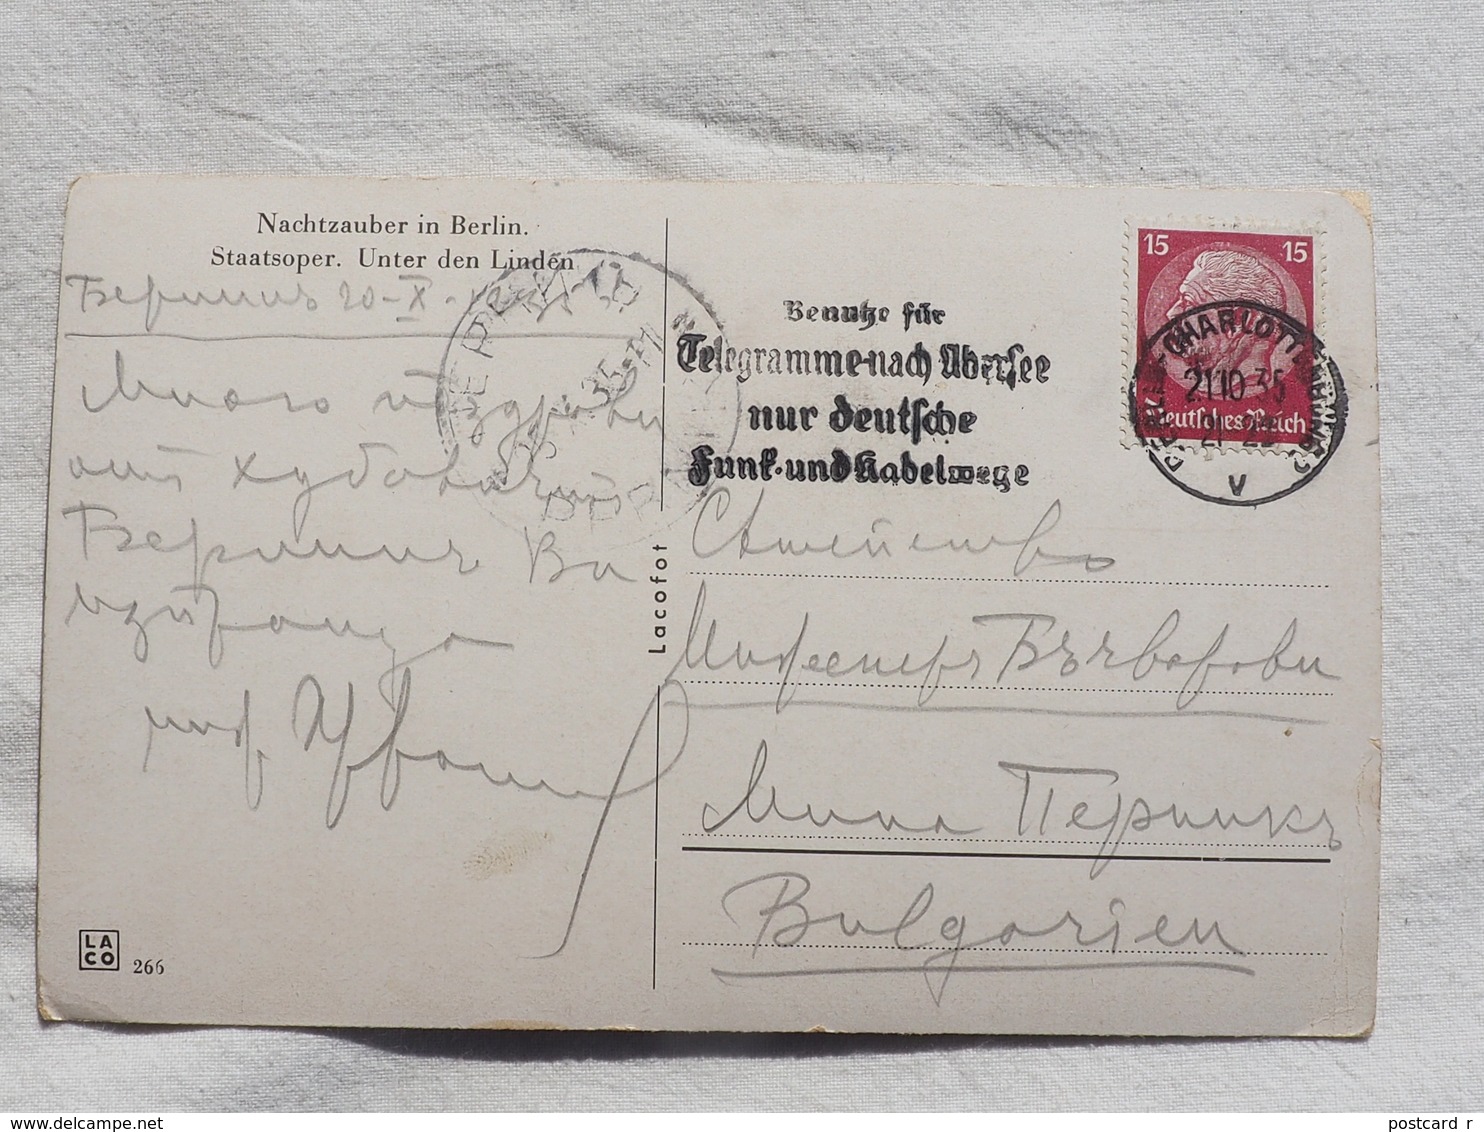 Nachtzauber in Berlin.
Staatsoper. Unter den Linden
Берлинъ 20-X-
Много поздрави
отъ хубавия
Берлинъ Ви
изпраща
инж.
LA
CO
266
Lacofot
Benutze für
Telegramme nach Übersee
nur deutsche
Funk- und Kabelwege
15 15
Deutsches Reich
BERLIN-CHARLOTTENBURG
21.10.35
V
Семейство
Инженеръ
Мина Перникъ
Bulgarien
delcampe.net
postcard_r